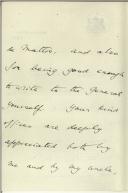 de Mattos, and also
for being good enough
to write to the General
yourself. Your kind
offices are deeply
appreciated both by
me and by my uncle,